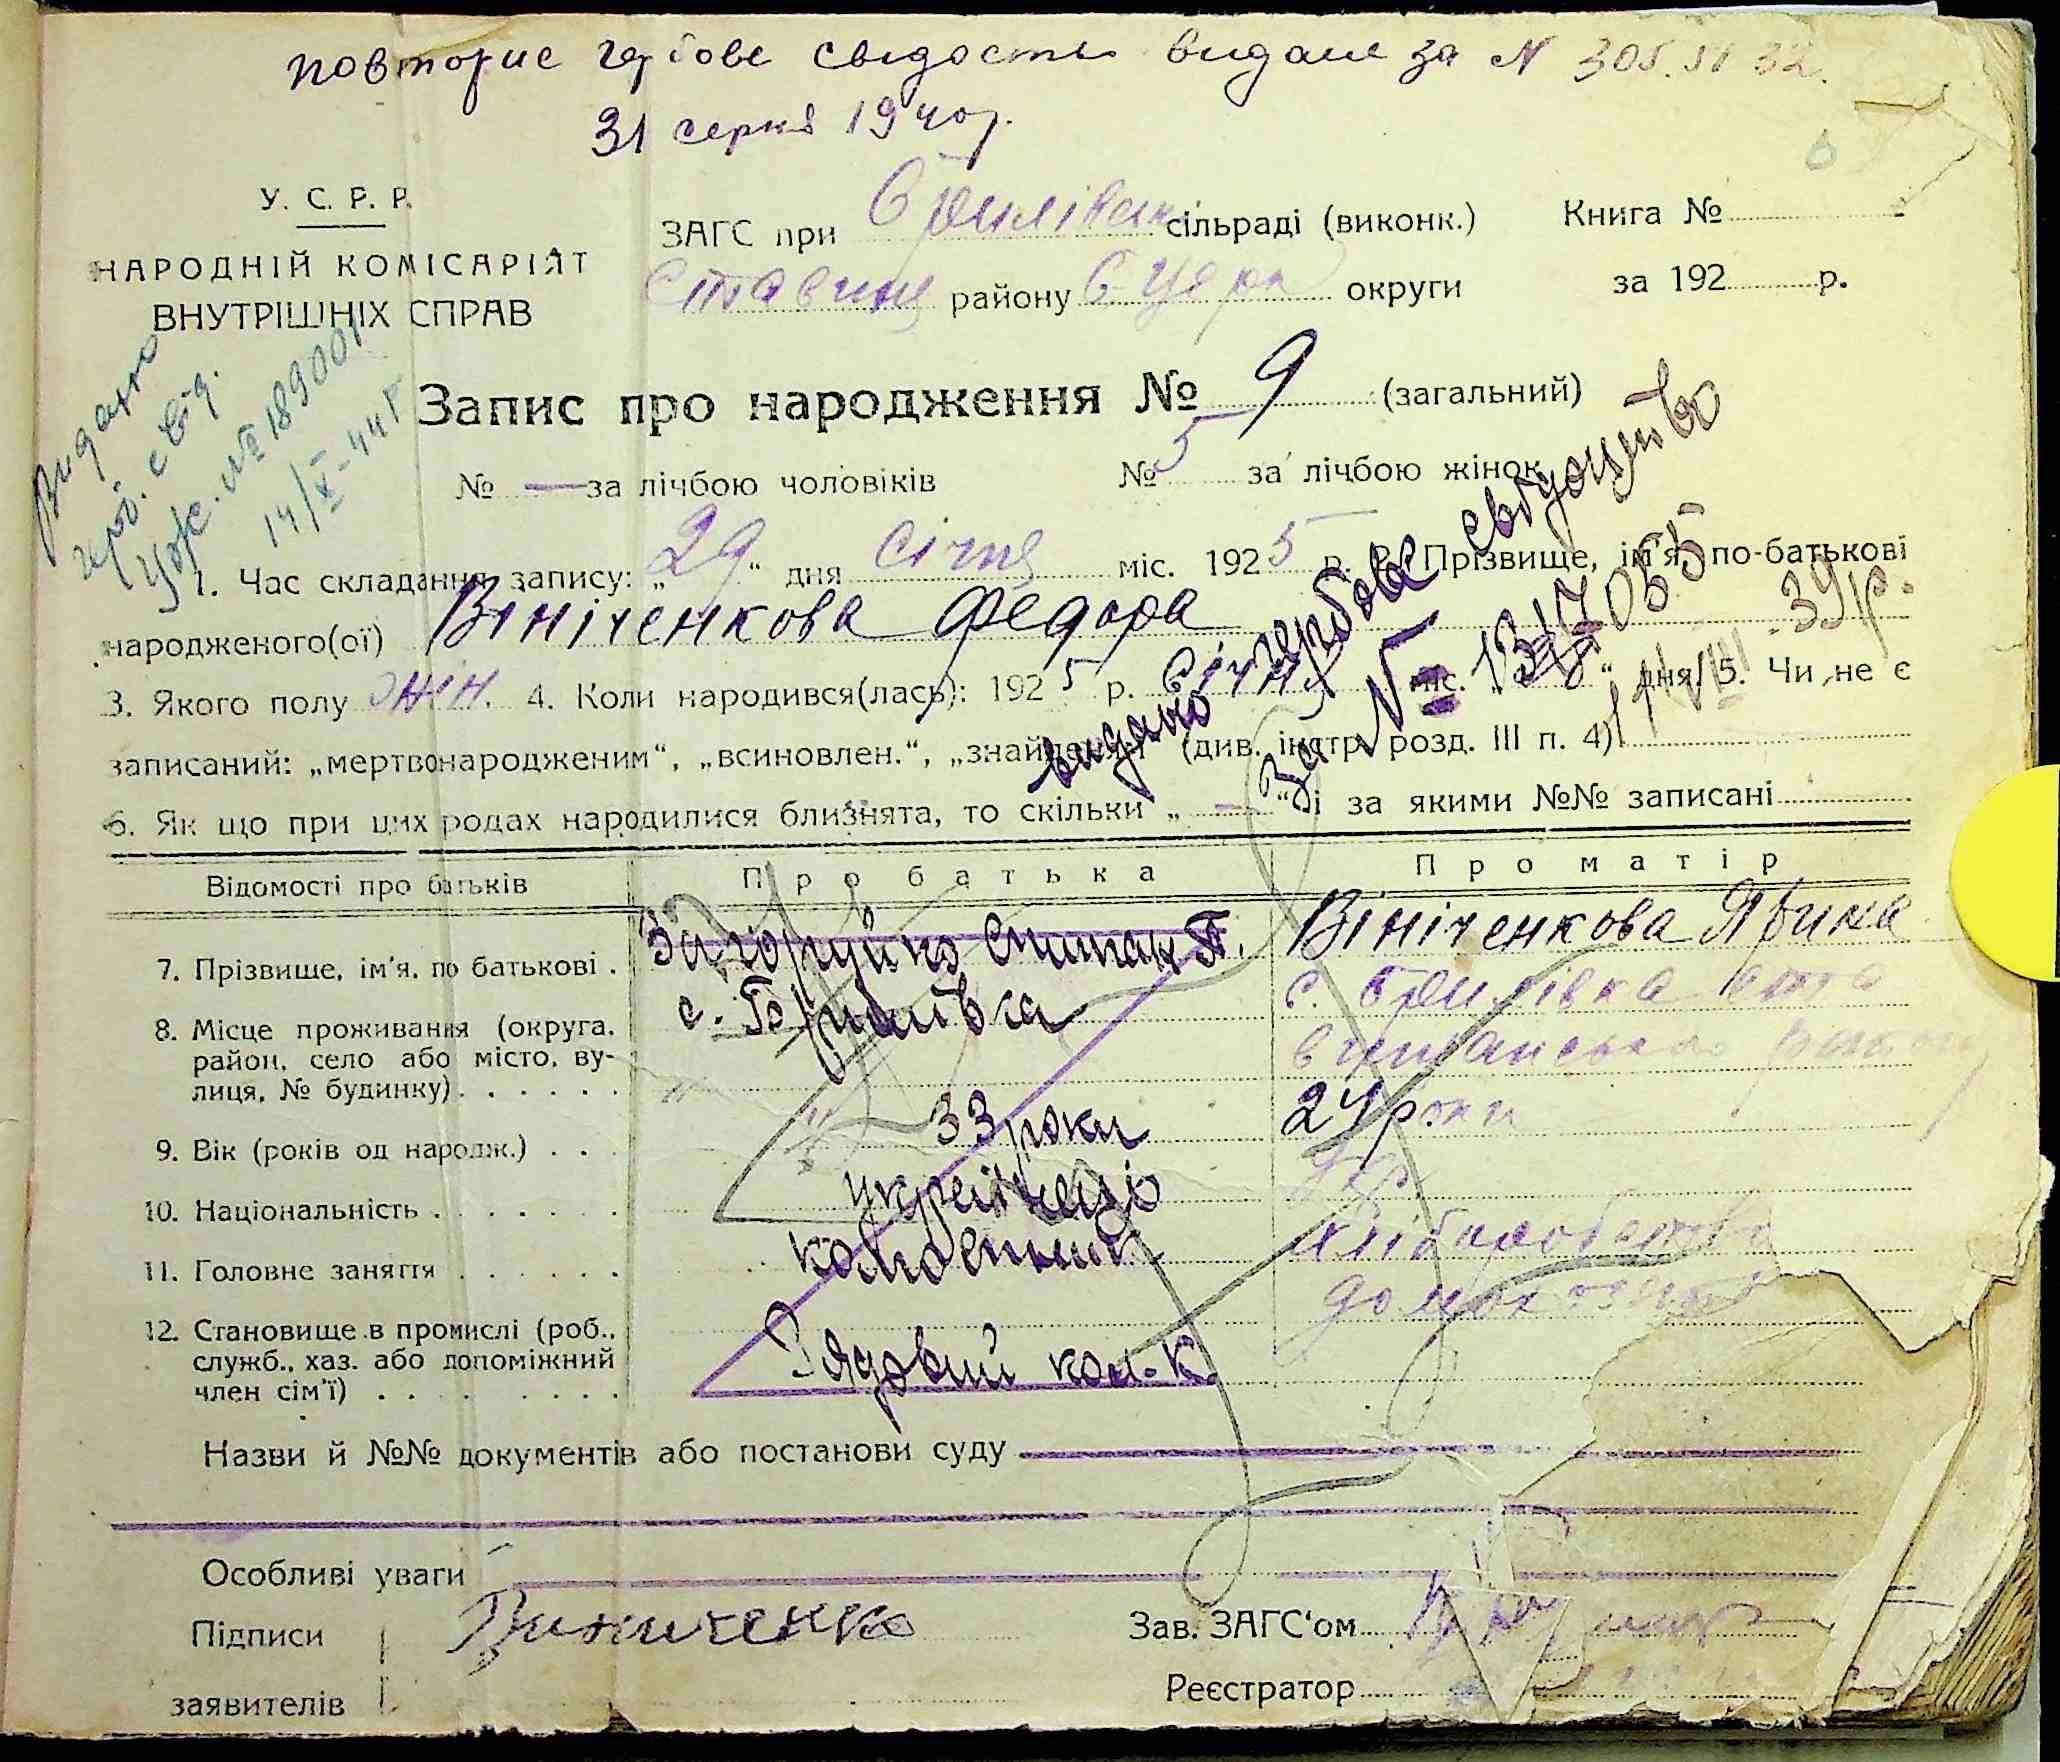 повторне гербове свідоство видане за N 305.5132.
31 серпня 1940 р.
У. С. Р. Р.
НАРОДНІЙ КОМІСАРІЯТ
ВНУТРІШНІХ СПРАВ
ЗАГС при сільраді (виконк.)
Ставищ району Б-Церк округи
Книга №
за 192 р.
Видано
герб. свід.
№ 189001
14/X-44 р
Запис про народження № 9 (загальний)
№ — за лічбою чоловіків № 5 за лічбою жінок
1. Час складання запису: „29“ дня січня міс. 1925 р. 2. Прізвище, ім'я, по-батькові
народженого(ої) Вініченкова Федора
3. Якого полу жін. 4. Коли народився(лась): 1925 р. Січня міс. „ “ дня 5. Чи не є
записаний: „мертвонародженим“, „всиновлен.“, „знайденим“ (див. інстр. розд. III п. 4)
6. Як що при цих родах народилися близнята, то скільки „—“ і за якими №№ записані
видано гербове свідоцтво
За № 39 р.
Відомості про батьків
Про батька
Про матір
7. Прізвище, ім'я, по батькові .
Степан П.
Вініченкова Ярина
8. Місце проживання (округа,
район, село або місто, ву-
лиця, № будинку) . . . . . .
с.
с.
9. Вік (років од народж.) . . .
33 роки
24 роки
10. Національність . . . . . . .
українець
Укр
11. Головне заняття . . . . . .
колгоспник
хліборобство
12. Становище в промислі (роб.,
служб., хаз. або допоміжний
член сім'ї) . . . . . . . . .
Рядовий кол-к.
Назви й №№ документів або постанови суду
Особливі уваги
Підписи
заявителів
Виниченко
Зав. ЗАГС'ом
Реєстратор